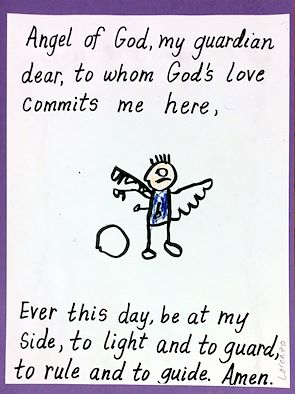 Angel of God, my guardian
dear, to whom God's love
commits me here,
Ever this day, be at my
side, to light and to guard,
to rule and to guide. Amen.
Lorenzo